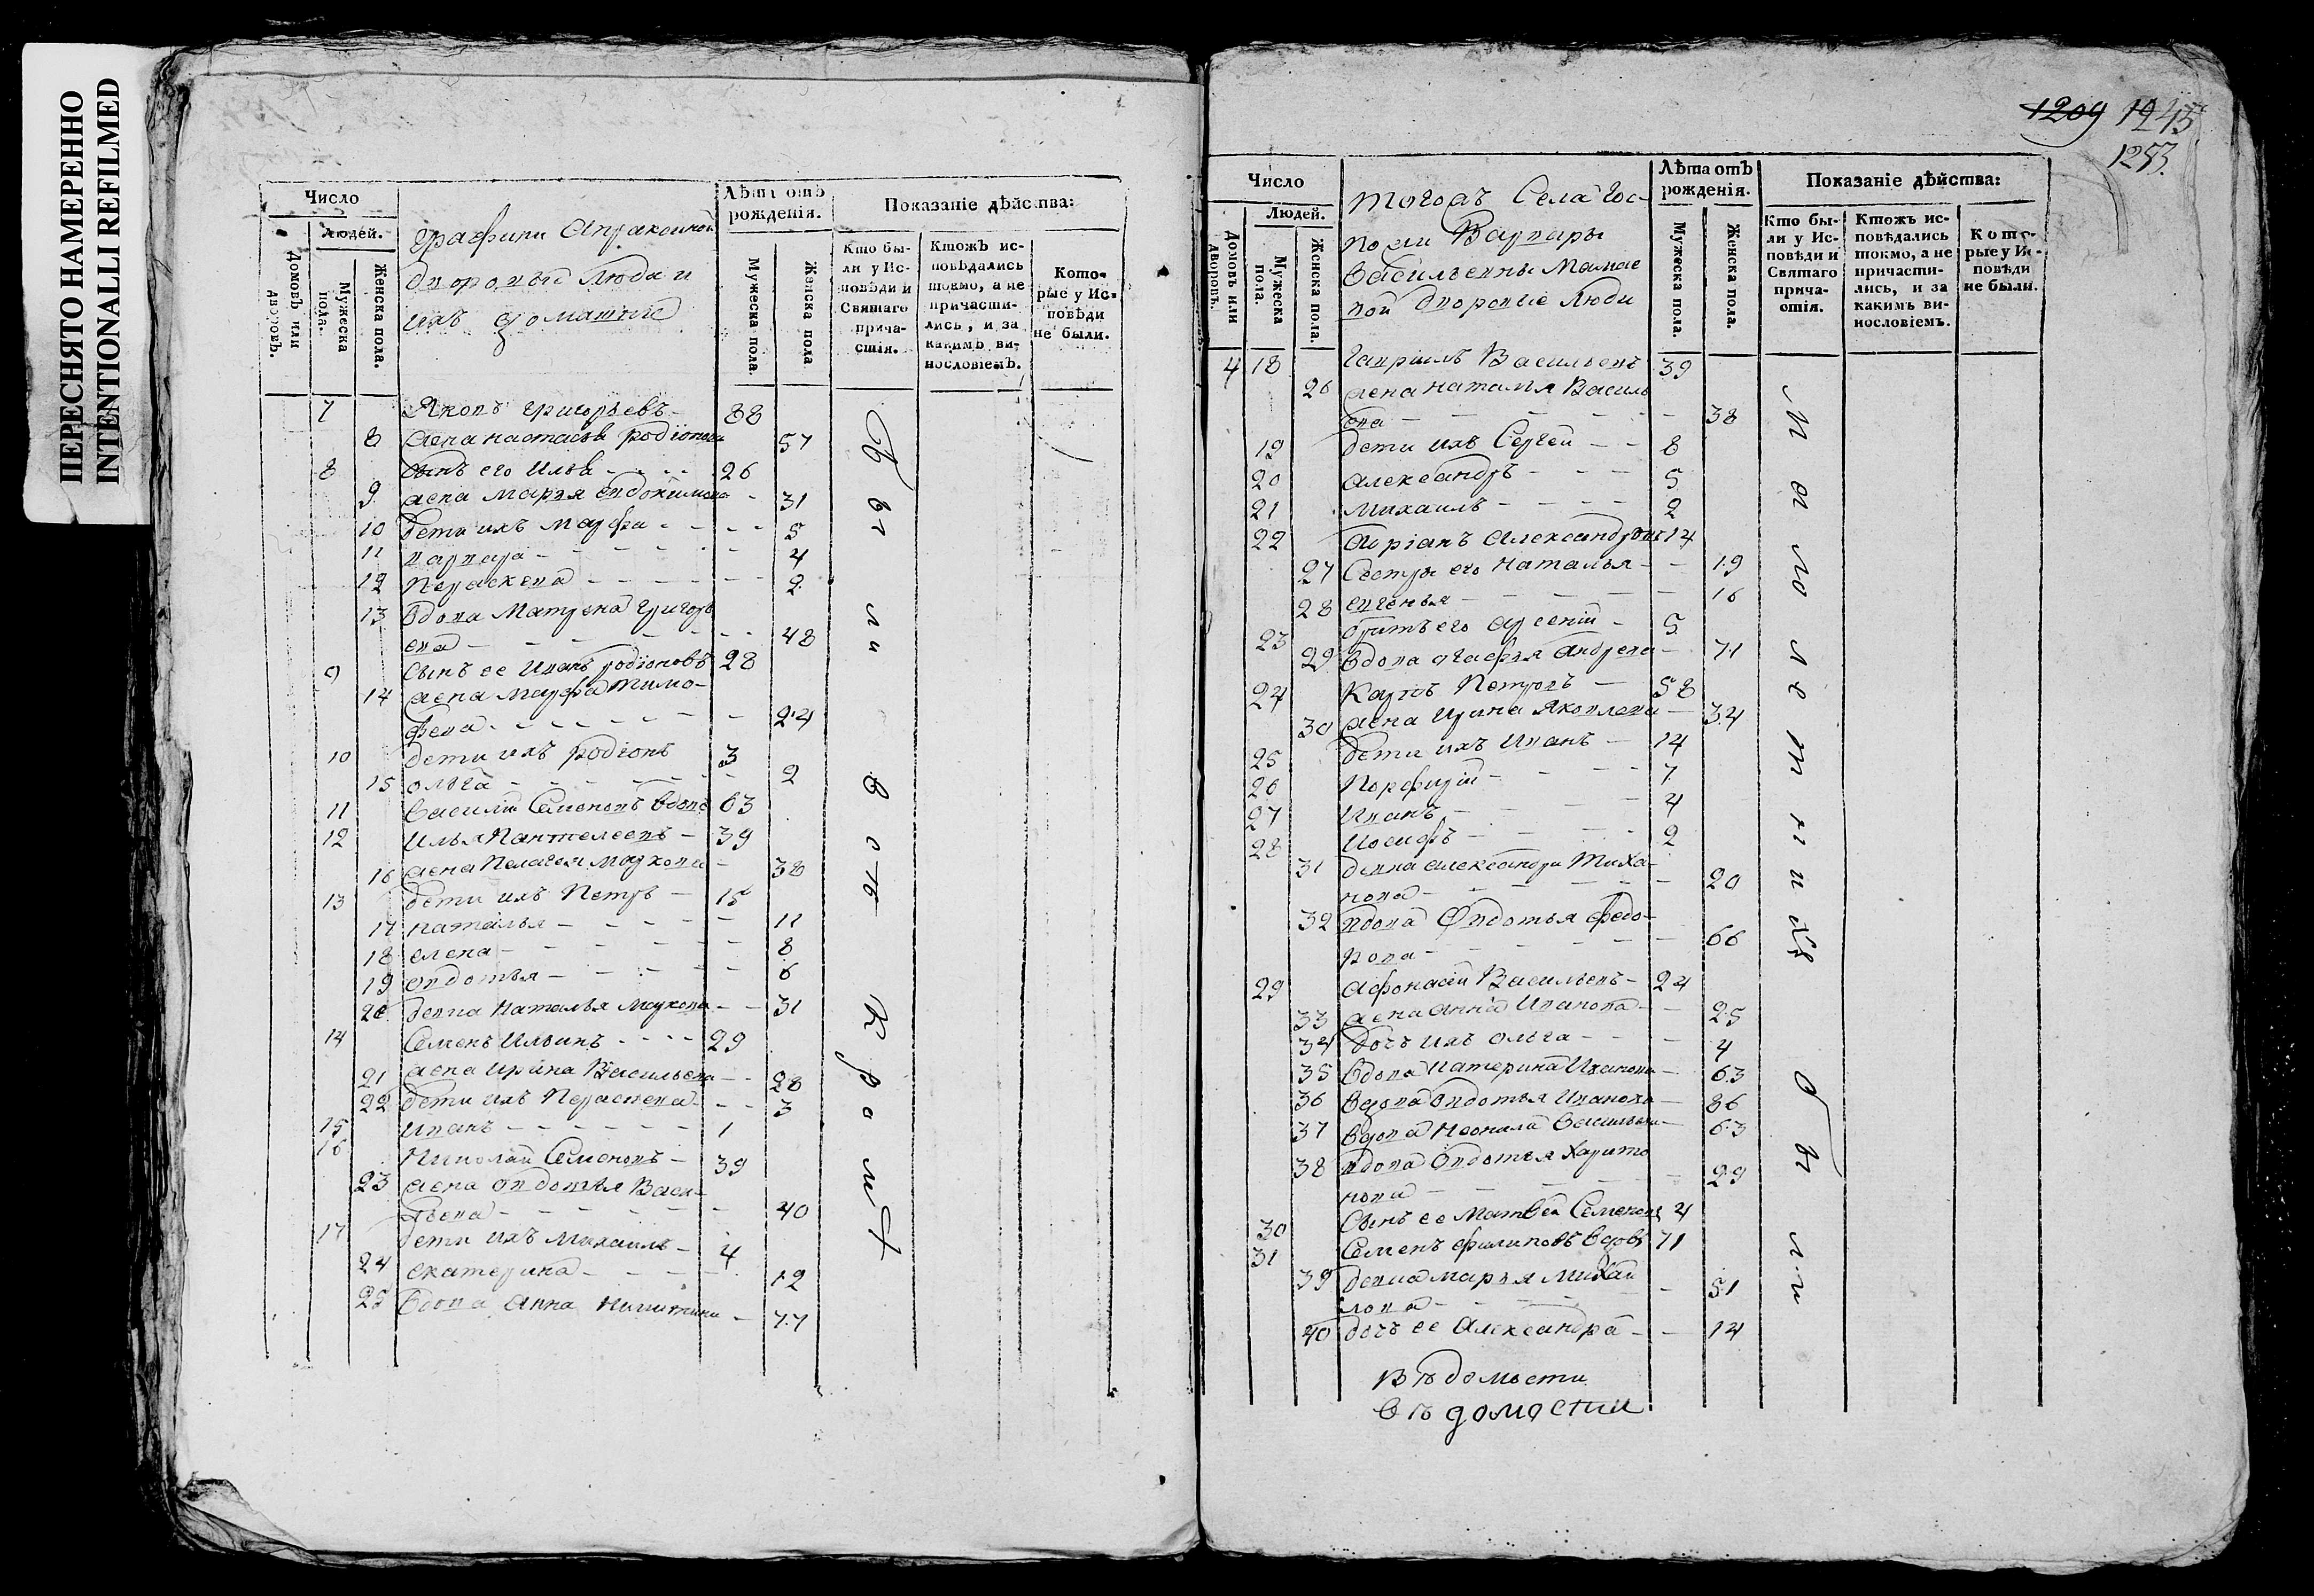 ПЕРЕСНЯТО НАМЕРЕННО
INTENTIONALLI REFILMED
Число
Людей.
Домовъ или дворовъ.
Мужеска пола.
Женска пола.
графини Апраксиной
дворовые люди и
ихъ домашние
Лѣта отъ рожденія.
Мужеска пола.
Женска пола
Показаніе дѣйства:
Кто были у Исповѣди и Святаго причастія.
Ктожъ исповѣдались токмо, а не причастились, и за какимъ винословіемъ.
Которые у Исповѣди не были.
7 Яковъ григорьевъ 88
8 жена настасья родіонова 57
8 сынъ его Илья 26
9 жена марья евдокимова 31
10 дети ихъ марфа 5
11 варвара 4
12 Параскева 2
13 вдова Матрена григорь
ева 48
9 сынъ ее Иванъ родіоновъ 28
14 жена марфа тимо-
феева 24
10 дети ихъ родіонъ 3
15 ольга 2
11 василий Семеновъ вдовъ 63
12 Илья Пантелеевъ 39
16 жена Пелагея маркова 38
13 дети ихъ Петръ 15
17 наталья 11
18 елена 8
19 овдотья 6
20 девка Наталья маркова 31
14 Семенъ Ильинъ 29
21 жена ирина Васильева 28
22 дети ихъ Параскева 3
15 иванъ 1
16 Николай Семеновъ 39
23 жена овдотья Васи-
льева 40
17 дети ихъ михаилъ 4
24 екатерина 12
25 вдова анна никитина 77
были
все
кромѣ
1209 1245
1253.
Число
Людей.
Домовъ или дворовъ.
Мужеска пола.
Женска пола.
тогожъ Села гос-
пожи Варвары
васильевны
дворовые люди
Лѣта отъ рожденія.
Мужеска пола.
Женска пола.
Показаніе дѣйства:
Кто были у Исповѣди и Святаго причастія.
Ктожъ исповѣдались токмо, а не причастились, и за какимъ винословіемъ.
Которые у Исповѣди не были.
4 18 гаврилъ Васильевъ 39
26 жена наталья Василь
ева 38
19 дети ихъ Сергей 8
20 александръ 5
21 михаилъ 2
22 андріанъ александровъ 14
27 Сестры его наталья 19
28 евгенья 16
23 братъ его арсений 5
29 вдова агафья андреева 71
24 Карпъ Петровъ 58
30 жена ирина Яковлева 34
25 дети ихъ иванъ 14
26 Порфирій 7
27 иванъ 4
28 иосифъ 2
31 девка александра Тиха-
нова 20
32 вдова Овдотья федо-
рова 66
29 афонасий Васильевъ 24
33 жена анна иванова 25
34 дочь ихъ ольга 4
35 вдова катерина иванова 63
36 вдова овдотья иванова 86
37 вдова неонила васильева 63
38 вдова овдотья Харито
нова 29
30 сынъ ее матвей Семеновъ 4
31 Семенъ филиповъ вдовъ 71
39 девка марья михай
лова 51
40 дочь ее александра 14
малолетнихъ
были
Вѣдомости
вѣдомости